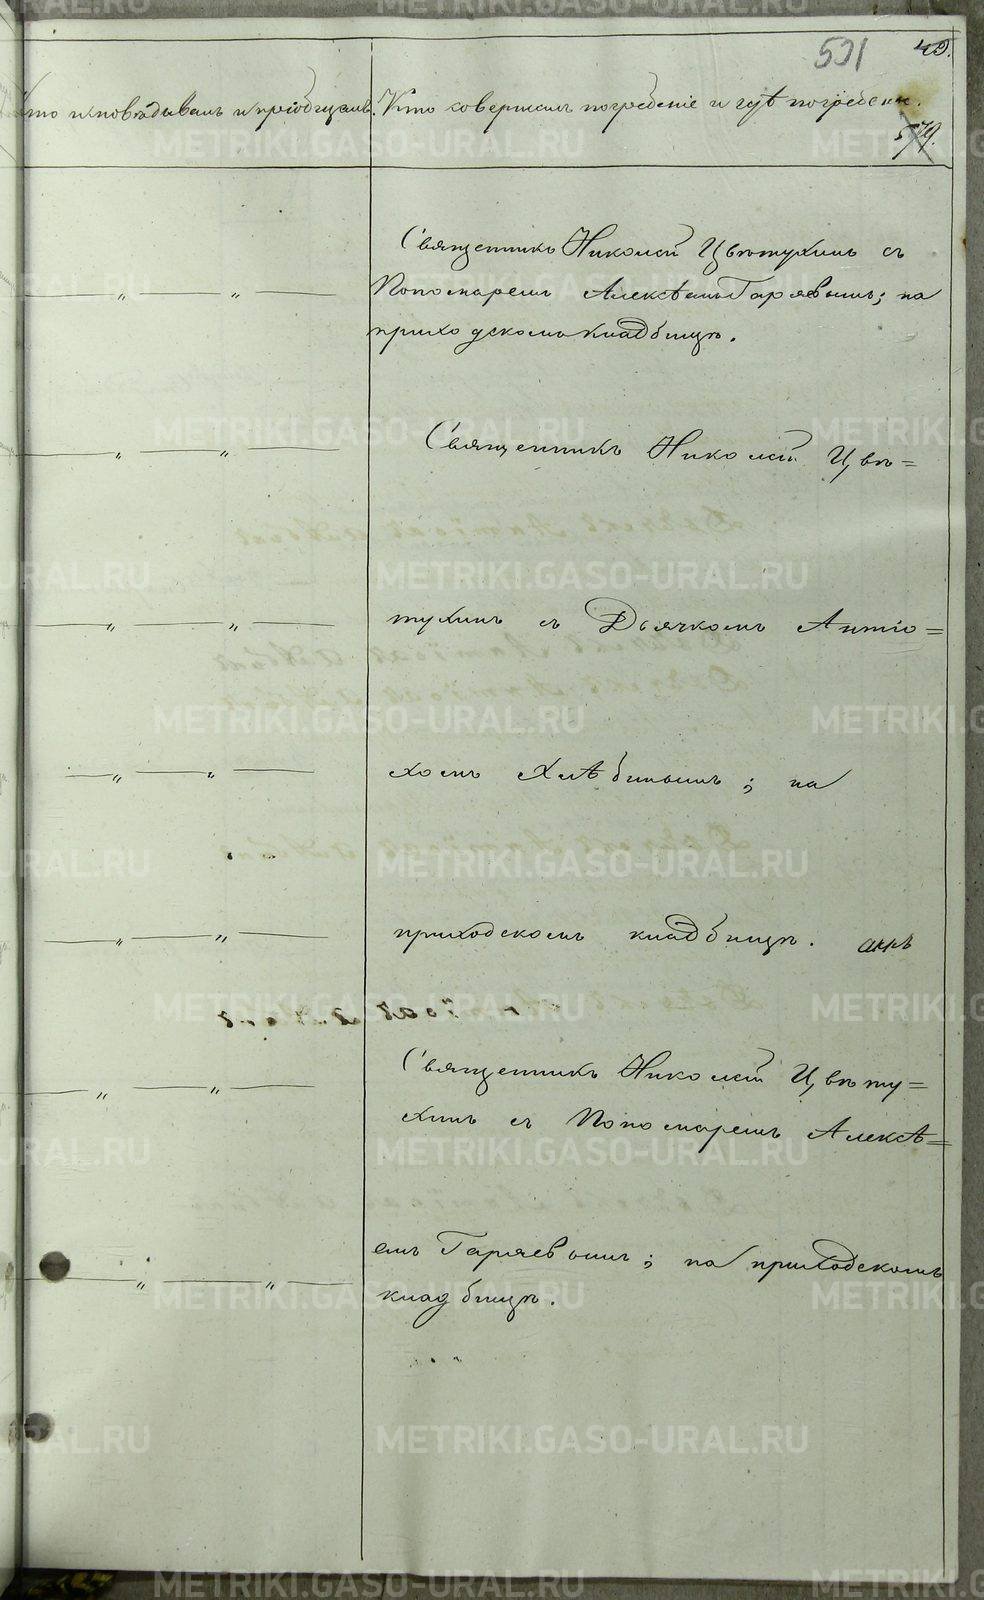 501 49.
Кто исповѣдывалъ и пріобщалъ. Кто совершалъ погребеніе и гдѣ погребены.
579.
Священникъ Николай Цвѣтухинъ съ
Пономаремъ Алексѣемъ Гаряевымъ; на
приходскомъ кладбищѣ.
Священникъ Николай Цвѣ=
тухинъ съ Дьячкомъ Антіо=
хомъ Хлѣбинымъ; на
приходскомъ кладбищѣ.
Священникъ Николай Цвѣту=
хинъ съ Пономаремъ Алексѣ=
емъ Гаряевымъ; на приходскомъ
кладбищѣ.
METRIKI.GASO-URAL.RU